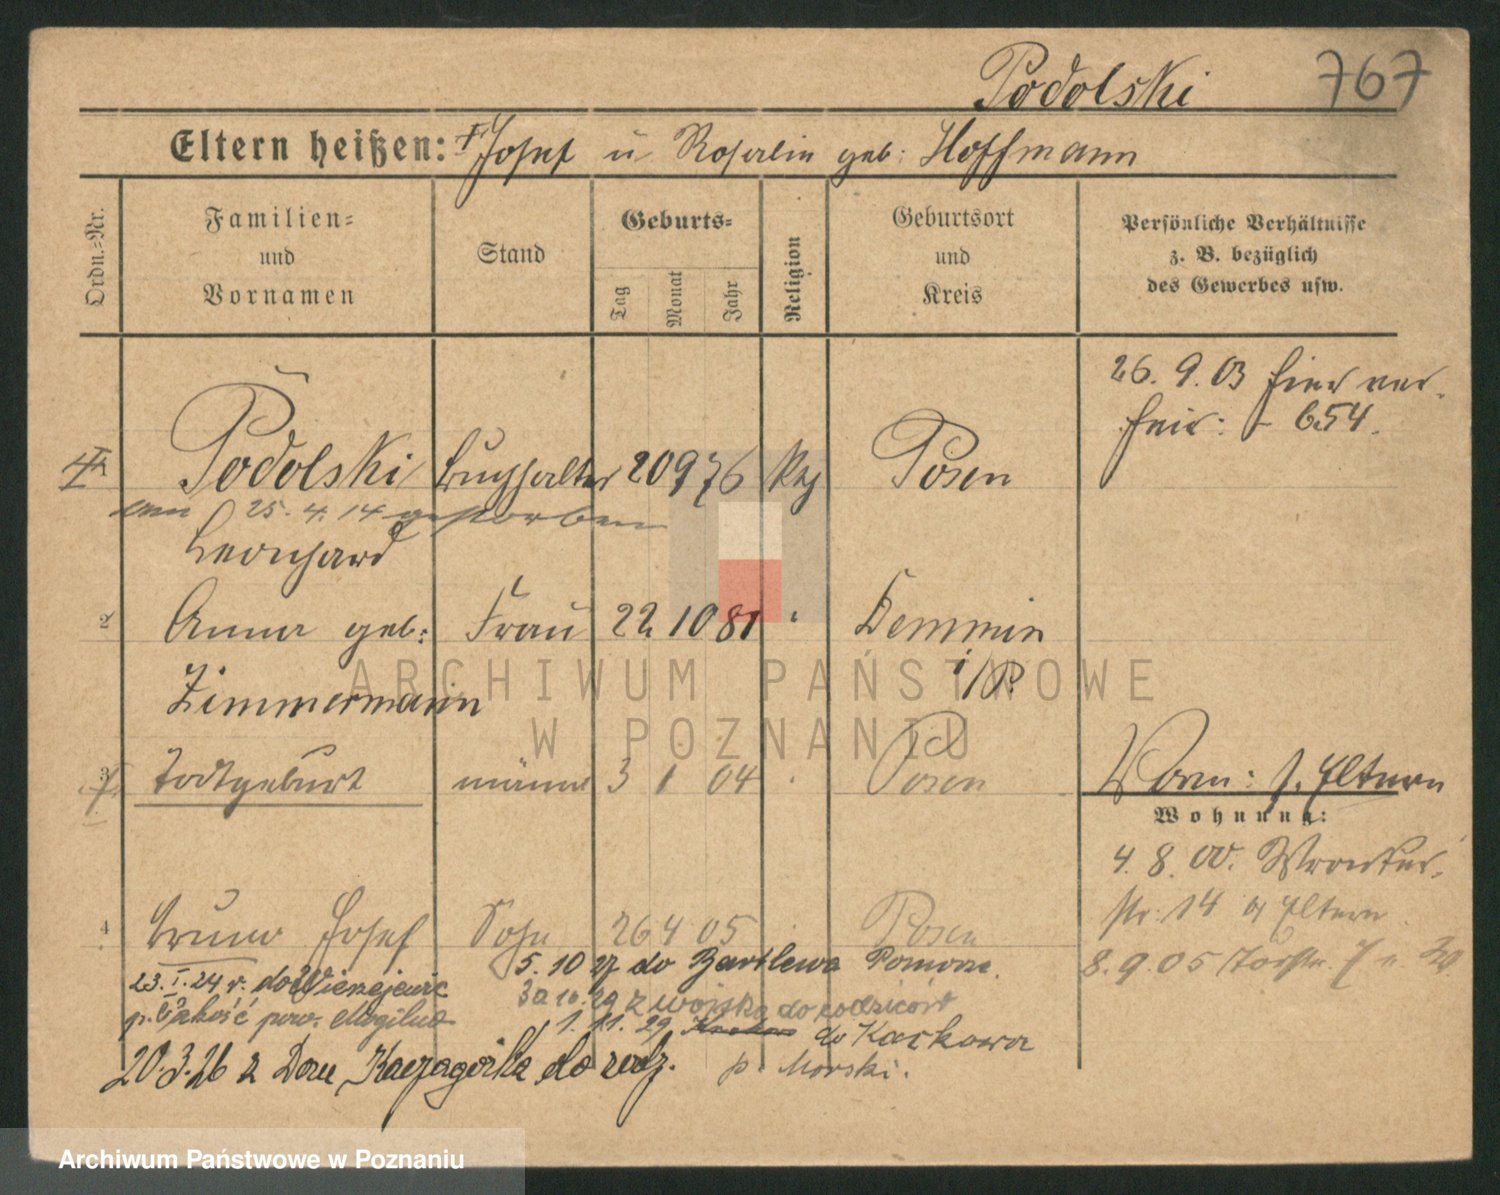 Podolski 767
Eltern heißen: † Josef u Rosalie geb: Hoffmann
Ordn.=Nr.
Familien=
und
Vornamen
Stand
Geburts=
Tag
Monat
Jahr
Religion
Geburtsort
und
Kreis
Persönliche Verhältnisse
z. B. bezüglich
des Gewerbes usw.
26. 9. 03 hier ver-
heir: 654.
Podolski Buchhalter 20 9 76 kath Posen
am 25. 4. 14 gestorben
Leonhard
2 Anna geb: Frau 22 10 81 " Demmin
i/P.
Zimmermann
3 Todtgeburt männl 3 1 04 " Posen
Vorm: s. Eltern
Wohnung:
4. 8. 00.
str: 14 Eltern
4 Bruno Josef Sohn 26 4 05 Posen
8. 9. 05
23. I. 24 r. do Wierzejewic
p. Jakość pow. Mogilno
5. 10 27 do Bartlewa Pomorze.
30 10. 29 z wojska do rodziców
1. 11. 29 do Kackowa
p. Morski.
20. 3. 26 z Dom. Kaczagórka do rodz.
ARCHIWUM PAŃSTWOWE
W POZNANIU
Archiwum Państwowe w Poznaniu